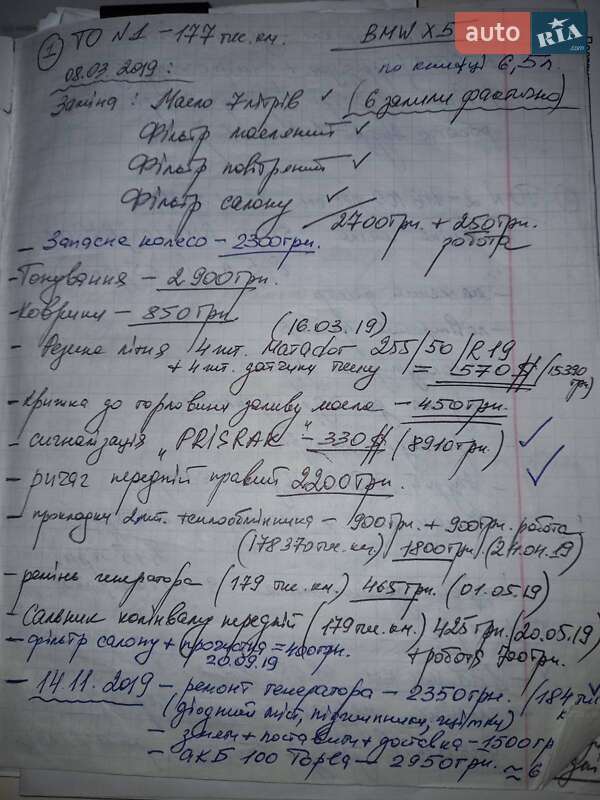 ① ТО №1 – 177 тис. км. BMW X5
auto RIA .com
08.03.2019: по книжці 6,5л.
Заміна: Масло 7 літрів ✓ (6 залили фактично)
Фільтр масляний ✓
Фільтр повітряний ✓
Фільтр салону ✓
2700грн. + 250грн.
робота
– Запасне колесо – 2300грн.
– Тонування – 2900грн.
– Коврики – 850грн
(16.03.19)
– Резина літня 4 шт. Matador 255/50/R19
+ 4 шт. датчики тиску = 570$ (15390
грн)
– Кришка до горловини заливу масла – 450грн.
– сигналізація "PRISRAK" – 330$ (8910грн.) ✓
– ричаг передній правий 2200грн. ✓
– прокладки 2шт. теплообмінника – 900грн. + 900грн. робота
(178370тис.км.) 1800грн. (24.04.19)
– ремінь генератора (179 тис.км.) 465грн. (01.05.19)
– Сальник колінвалу передній (179тис.км.) 425грн. (20.05.19)
– фільтр салону + прочистка = 400грн. + робота 700грн.
20.09.19
– 14.11.2019 – ремонт генератора – 2350грн. (184 тис
к
(діодний міст, підшипники, щітки)
– зняти + поставити + доставка – 1500гр
– АКБ 100 Торга – 2950грн. ≈ 6